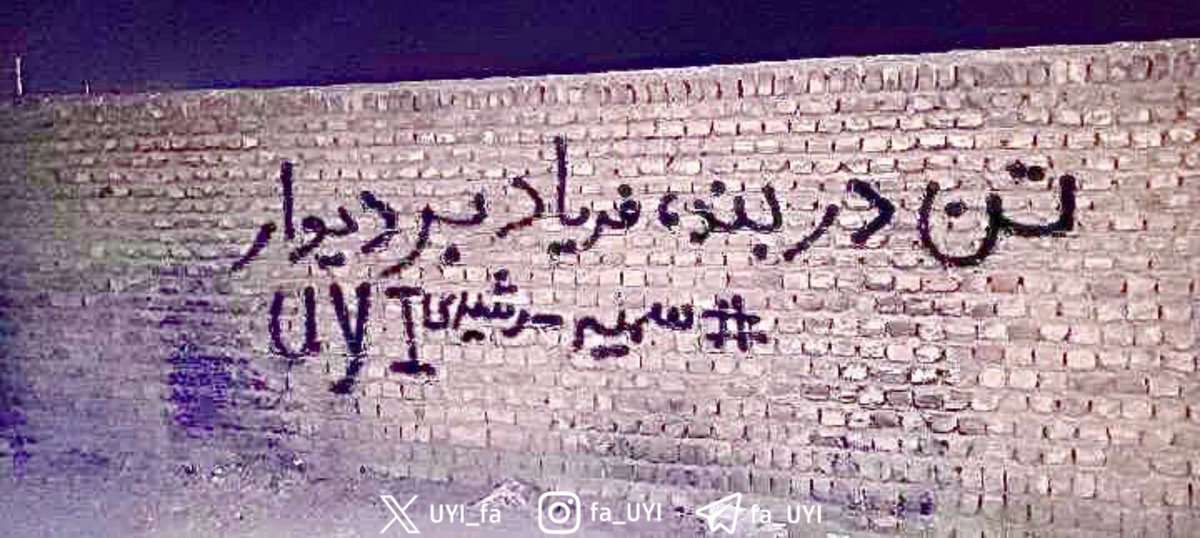 تن در بند، فریاد بر دیوار
#سمیه_رشیدی UYI
UYI_fa fa_UYI fa_UYI